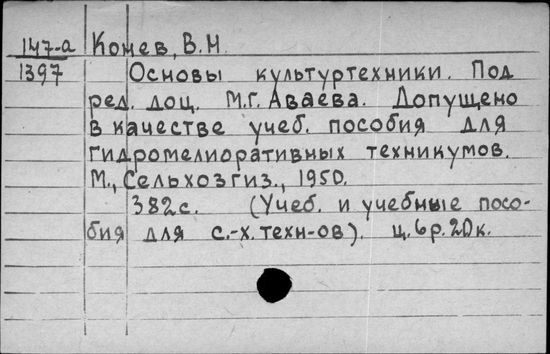 147-а Конев, В.Н.
1397 Основы культуртехники. Под
ред. доц. М.Г. Аваева. Допущено
в качестве учеб. пособия для
гидромелиоративных техникумов.
М., Сельхозгиз., 1950.
382с. (Учеб. и учебные посо-
бия для с.-х. техн-ов). ц. 6р. 20к.